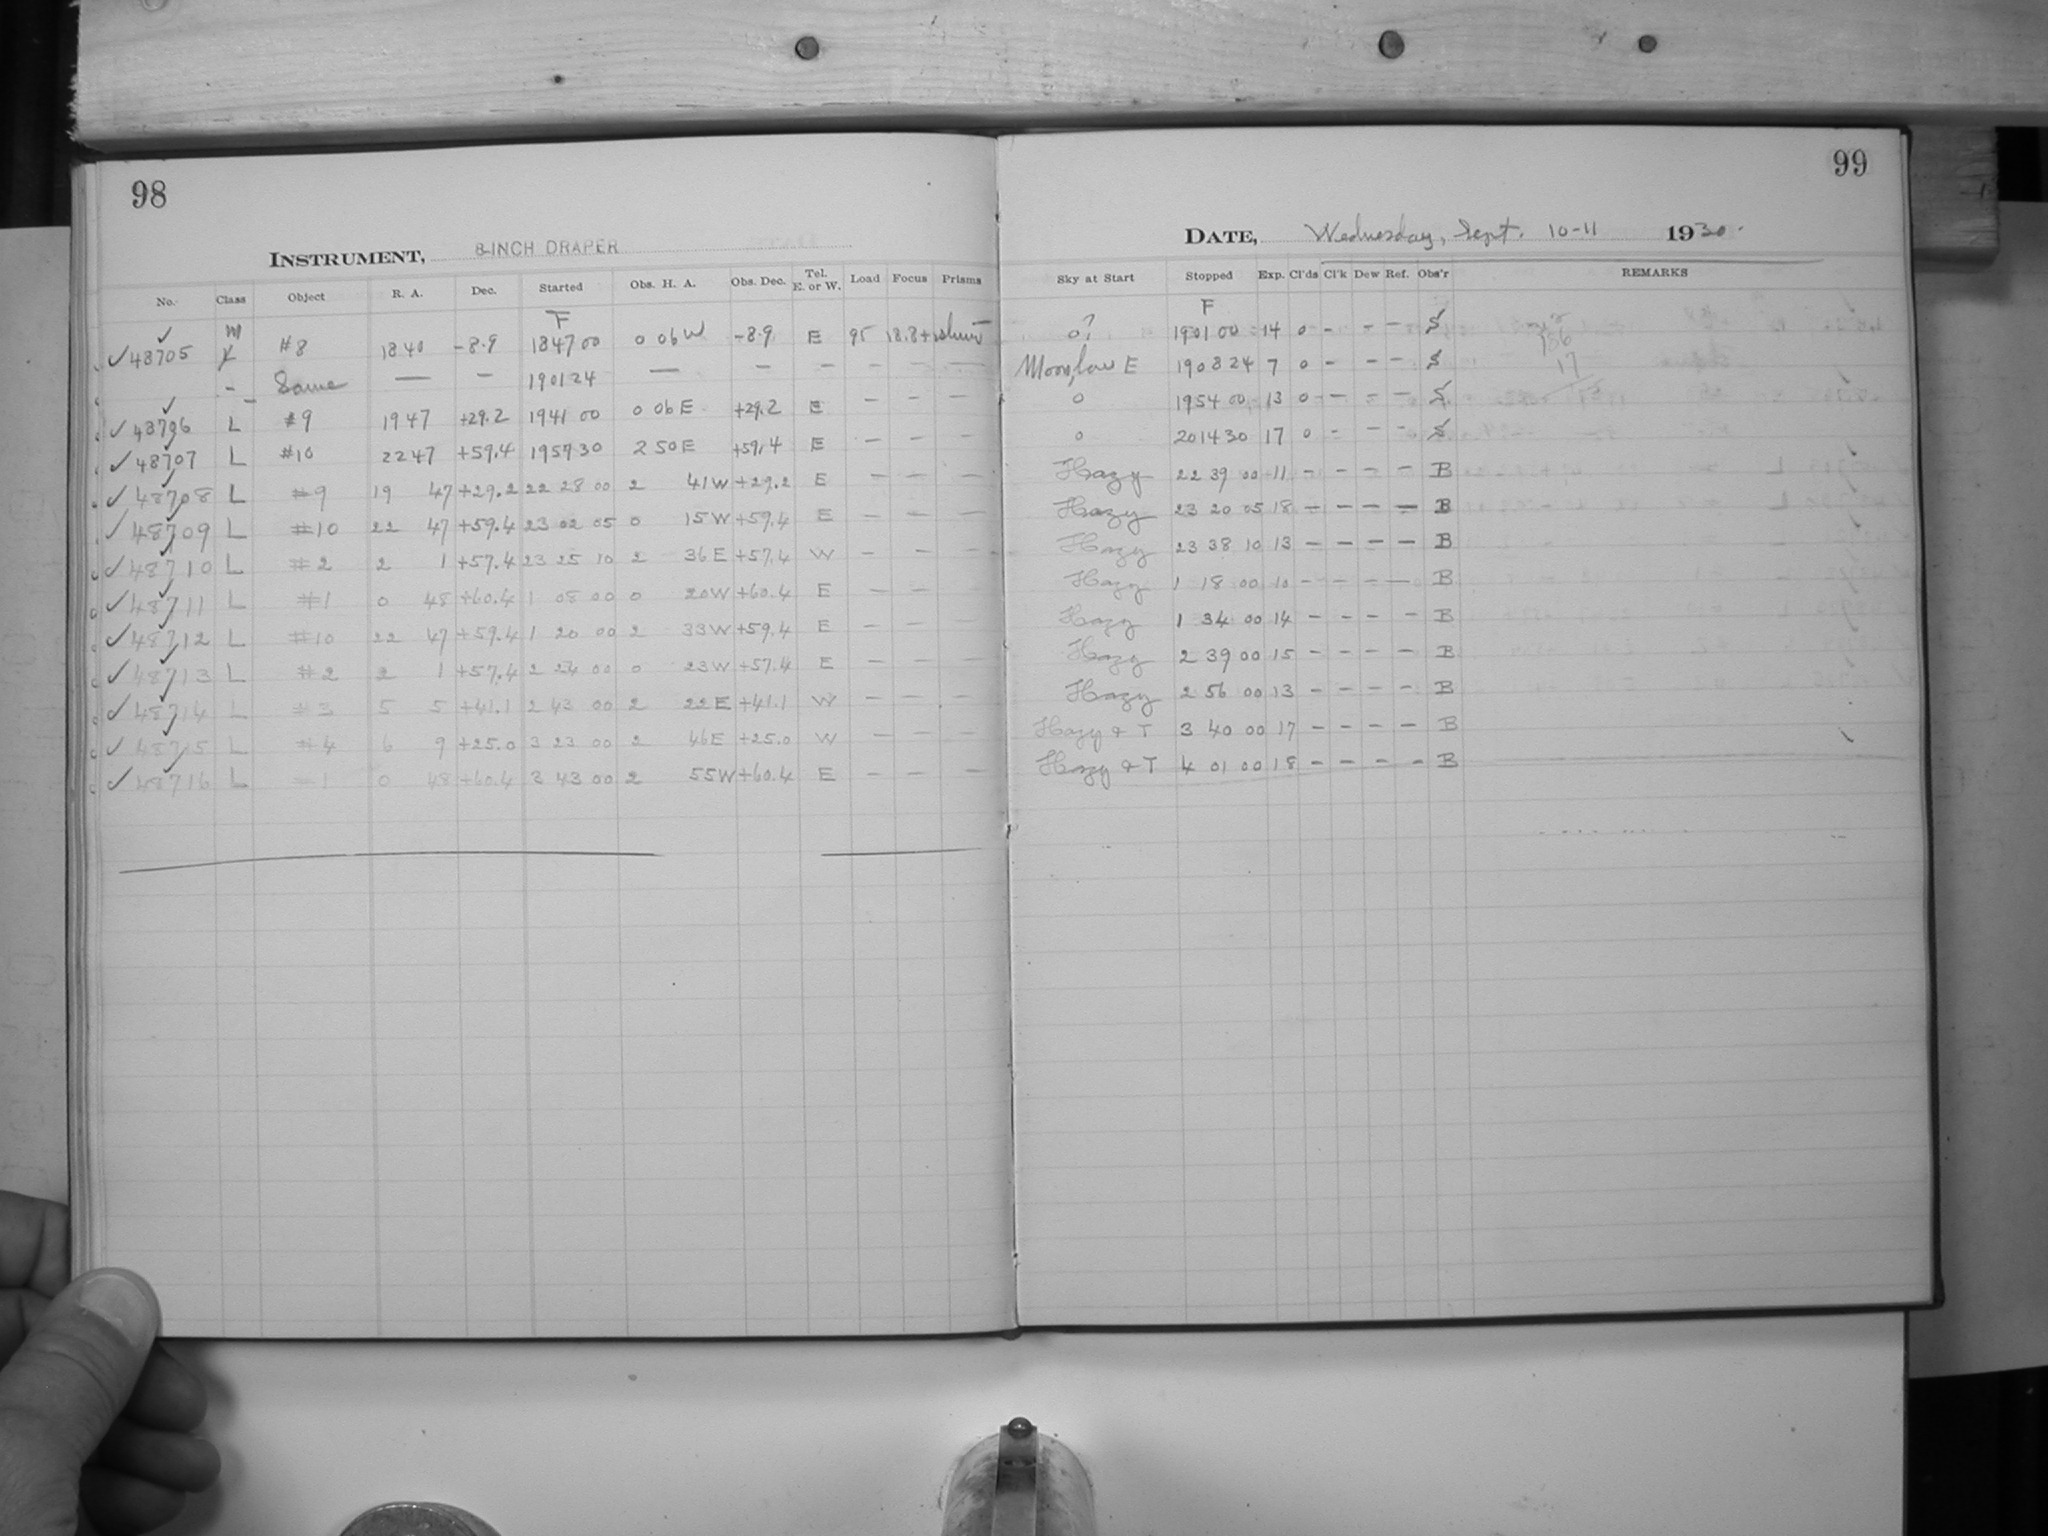 98
INSTRUMENT, 8-INCH DRAPER
No. Class Object R. A. Dec. Started Obs. H. A. Obs. Dec. Tel. E. or W. Load Focus Prisms
F
✓ 48705 M #8 18 40 -8.9 18 47 00 0 06 W -8.9 E 95 18.8+
- Same — - 19 01 24 — - - - - -
✓ 48706 L #9 19 47 +29.2 19 41 00 0 06 E +29.2 E - - -
✓ 48707 L #10 22 47 +59.4 19 57 30 2 50 E +59.4 E - - -
✓ 48708 L #9 19 47 +29.2 22 28 00 2 41 W +29.2 E - - -
✓ 48709 L #10 22 47 +59.4 23 02 05 0 15 W +59.4 E - - -
✓ 48710 L #2 2 1 +57.4 23 25 10 2 36 E +57.4 W - - -
✓ 48711 L #1 0 48 +60.4 1 08 00 0 20 W +60.4 E - - -
✓ 48712 L #10 22 47 +59.4 1 20 00 2 33 W +59.4 E - - -
✓ 48713 L #2 2 1 +57.4 2 24 00 0 23 W +57.4 E - - -
✓ 48714 L #3 5 5 +41.1 2 43 00 2 22 E +41.1 W - - -
✓ 48715 L #4 6 9 +25.0 3 23 00 2 46 E +25.0 W - - -
✓ 48716 L #1 0 48 +60.4 3 43 00 2 55 W +60.4 E - - -
99
DATE, Wednesday, Sept. 10-11 1930.
Sky at Start Stopped Exp. Cl'ds Cl'k Dew Ref. Obs'r REMARKS
F
0? 19 01 00 14 0 - - - S
Moon, low E 19 08 24 7 0 - - - S
0 19 54 00 13 0 - - - S
0 20 14 30 17 0 - - - S
Hazy 22 39 00 11 - - - - B
Hazy 23 20 05 18 - - - - B
Hazy 23 38 10 13 - - - - B
Hazy 1 18 00 10 - - - - B
Hazy 1 34 00 14 - - - - B
Hazy 2 39 00 15 - - - - B
Hazy 2 56 00 13 - - - - B
Hazy & T 3 40 00 17 - - - - B
Hazy & T 4 01 00 18 - - - - B
17